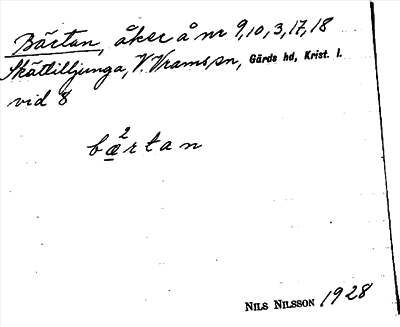 Bärtan, åker å nr 9,10,3,17,18
Skättilljunga, V. Vrams sn, Gärds hd, Krist. l.
vid 8
2
bærtan
NILS NILSSON 1928